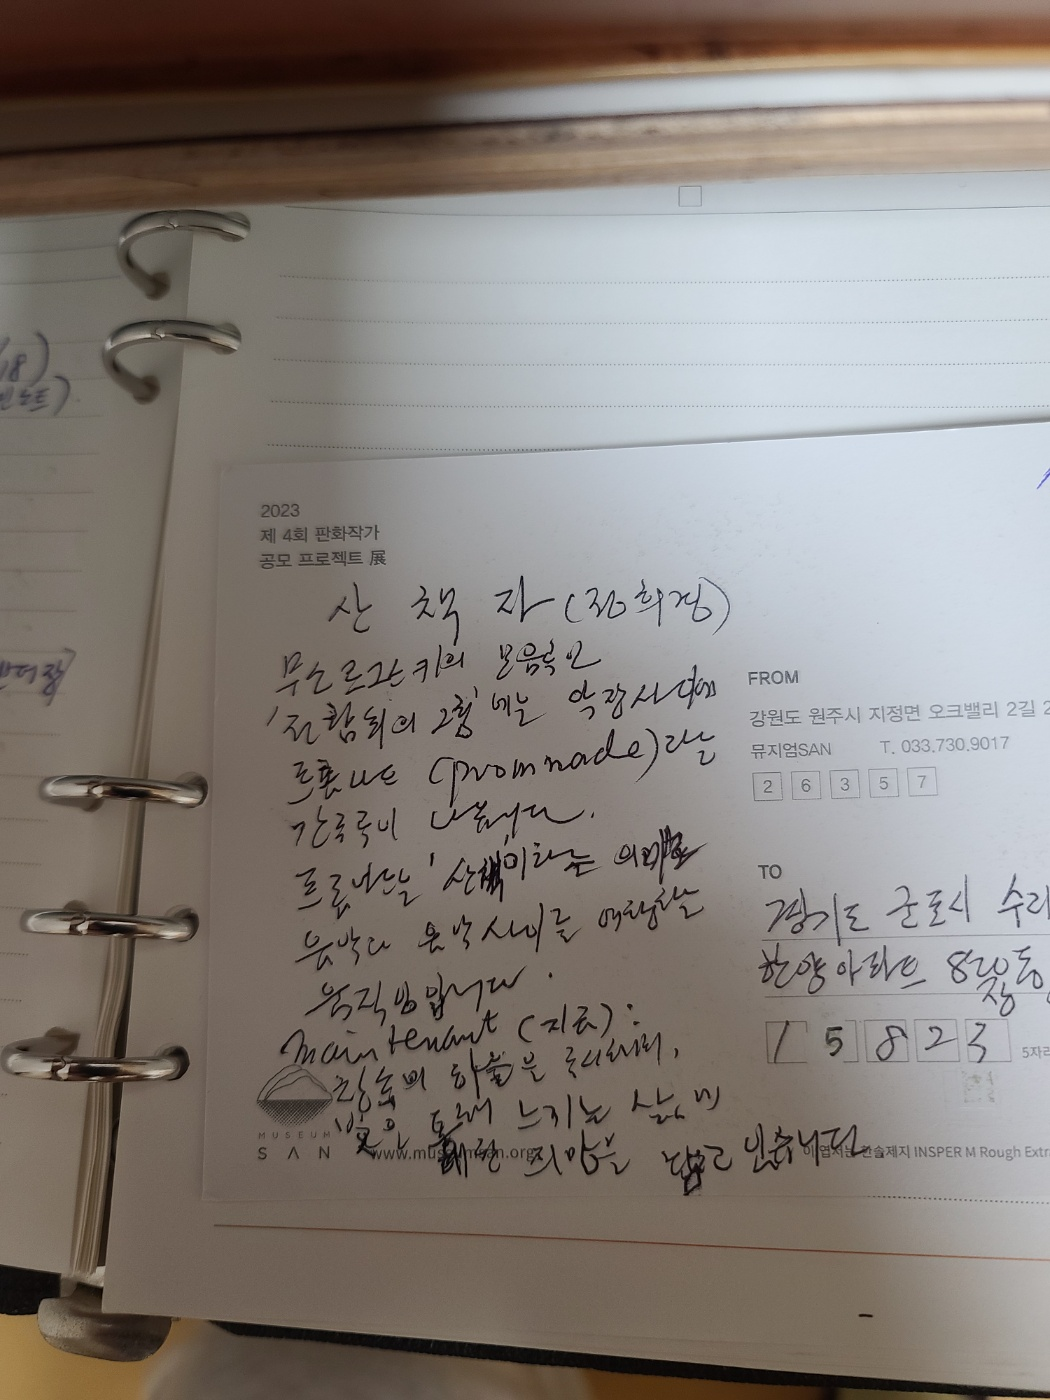 2023
제 4회 판화작가
공모 프로젝트 展
산 책 자 (정희정)
무소르그스키의 모음곡인
'전람회의 그림'에는 악장사이에
(prommade)라는
간주곡이 나옵니다.
'산책'이라는 의미로
음악과 음악사이를 여행하는
움직임입니다.
maintenant (지금):
하늘을
느끼는 삶에
희망을 담고 있습니다
MUSEUM
SAN
FROM
강원도 원주시 지정면 오크밸리 2길 2
뮤지엄SAN T. 033.730.9017
2 6 3 5 7
TO
경기도 군포시 수리
한양아파트
1 5 8 2 3
5자리
이 엽서는 한솔제지 INSPER M Rough Extra
18)